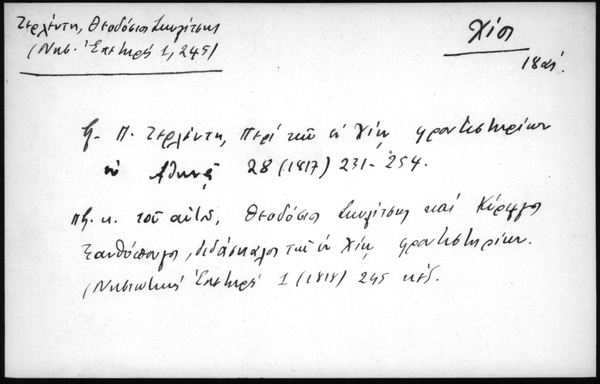 Ζερλέντη, Θεοδόσιος Σκυλίτσης
(Νησ. Ἐπετηρὶς 1, 245)
Χίος
18 αἰ.
Π. Ζερλέντη, Περὶ τῶν ἐν Χίῳ φροντιστηρίων
ἐν Ἀθηνᾷ 28 (1917) 231-254.
τοῦ αὐτοῦ, Θεοδόσιος Σκυλίτσης καὶ Κύριλλος
Ξανθόπουλος, διδάσκαλοι τῶν ἐν Χίῳ φροντιστηρίων.
(Νησιωτικὴ Ἐπετηρὶς 1 (1918) 245 κἑξ.